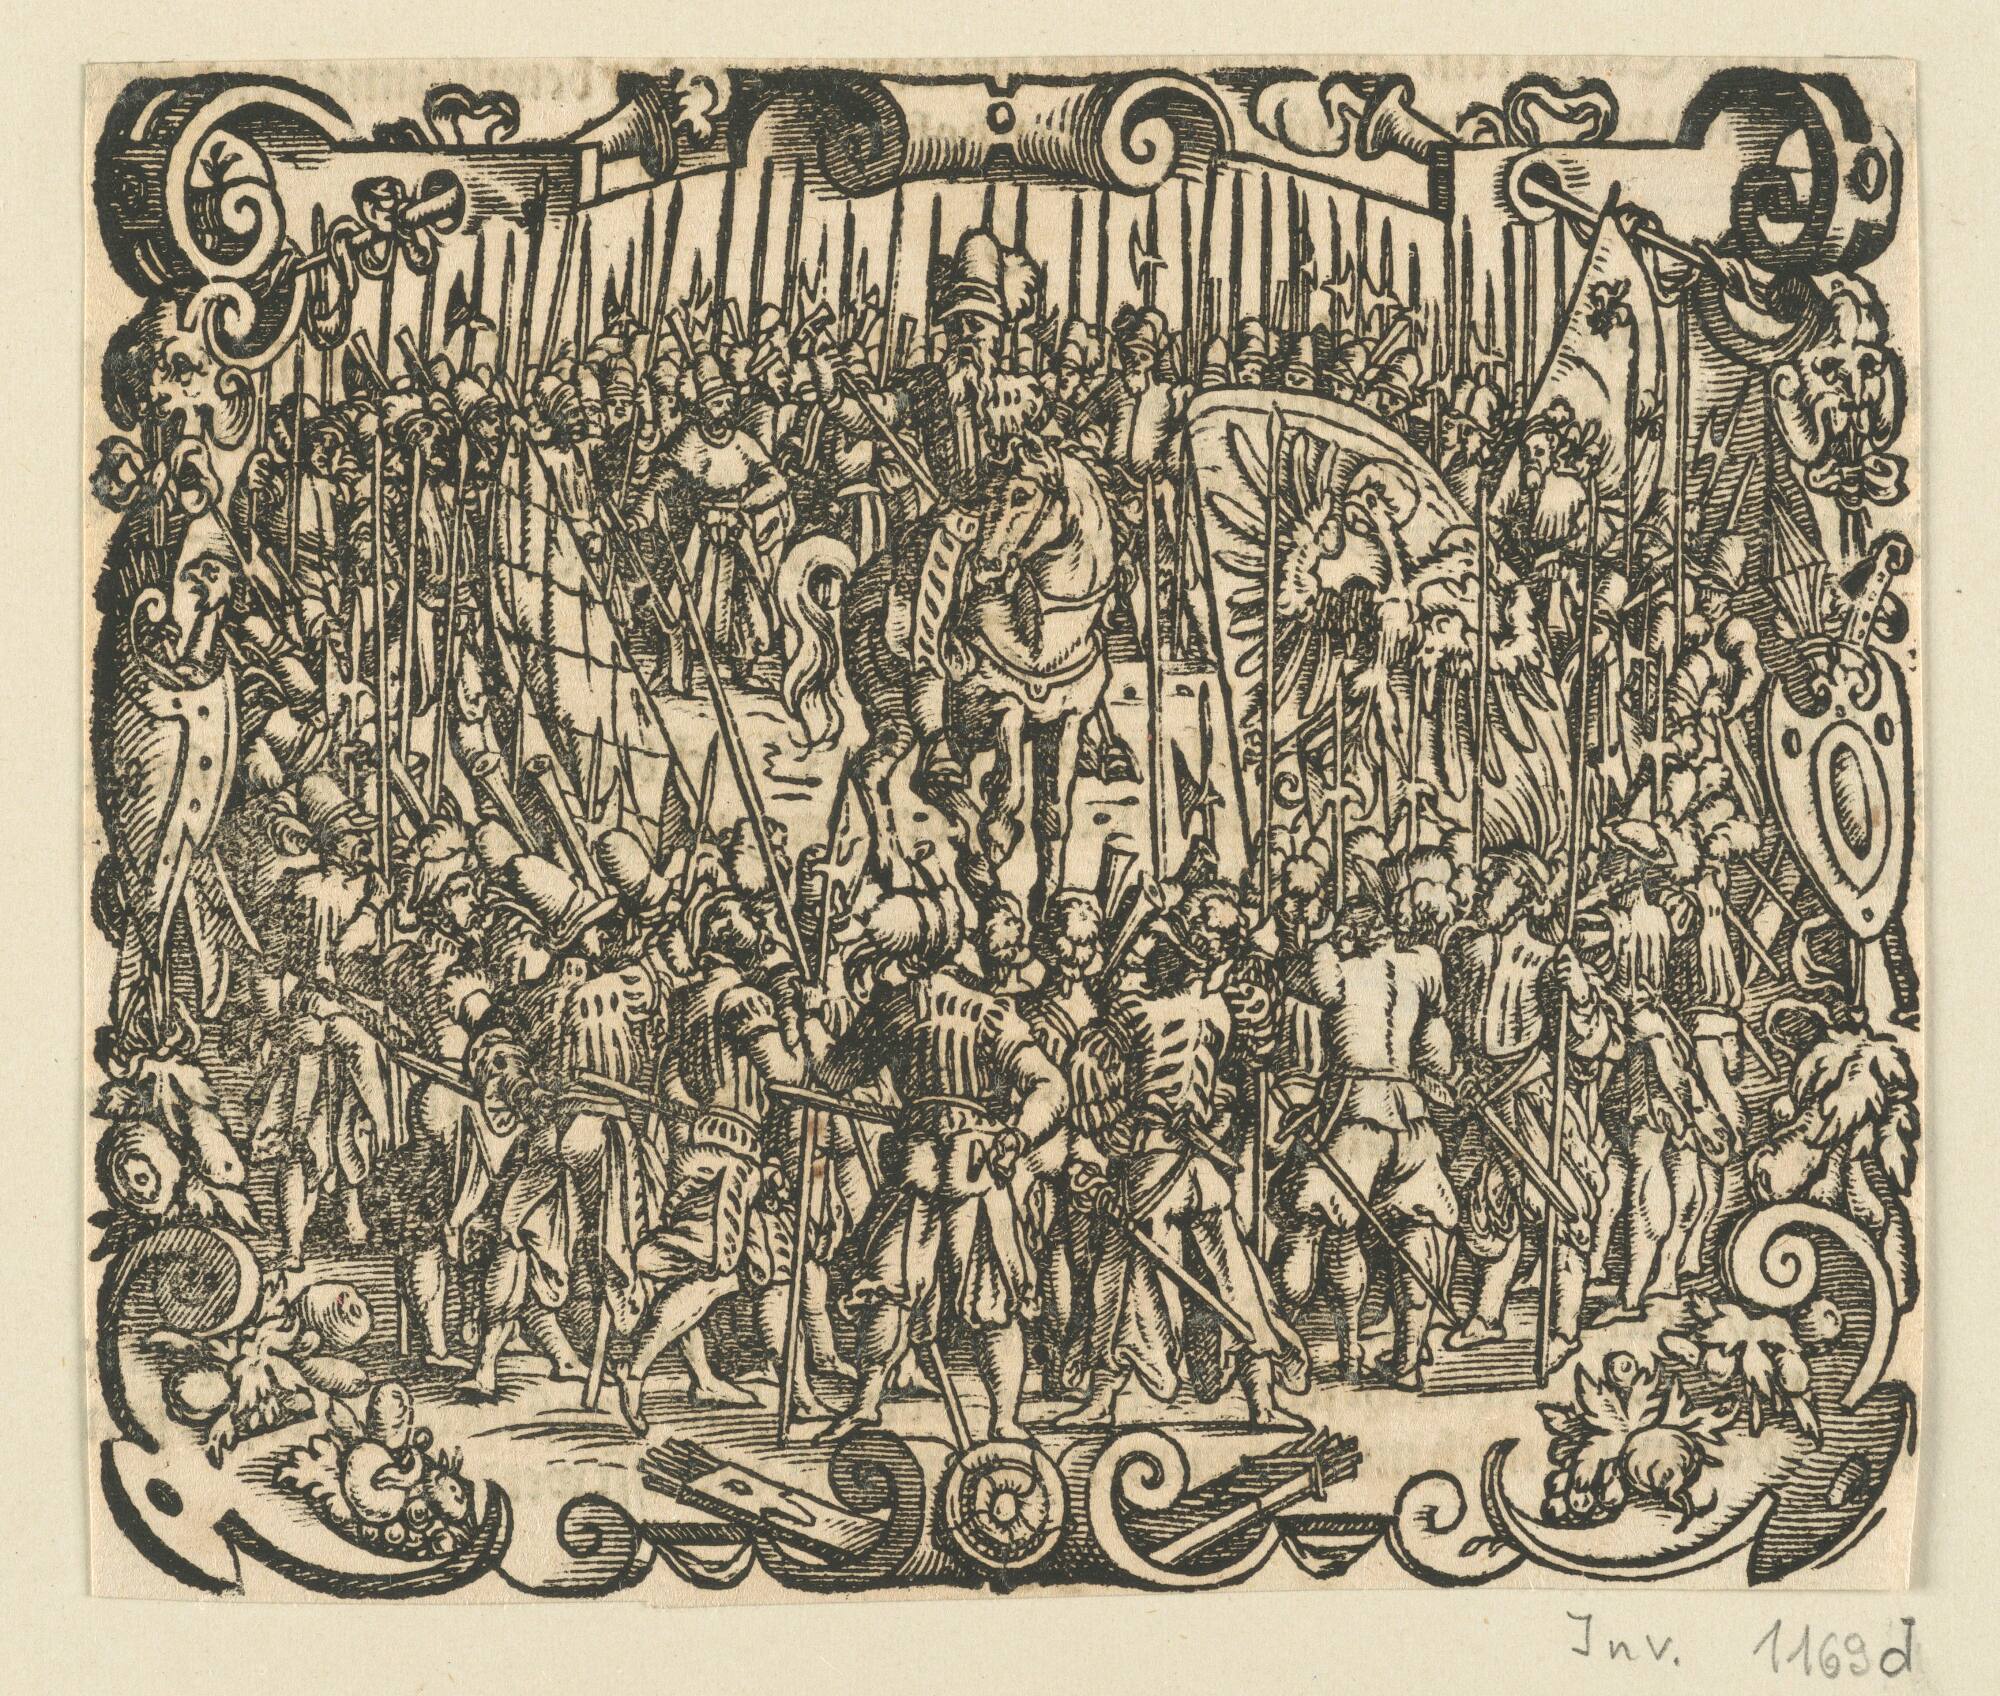 Inv. 1169d